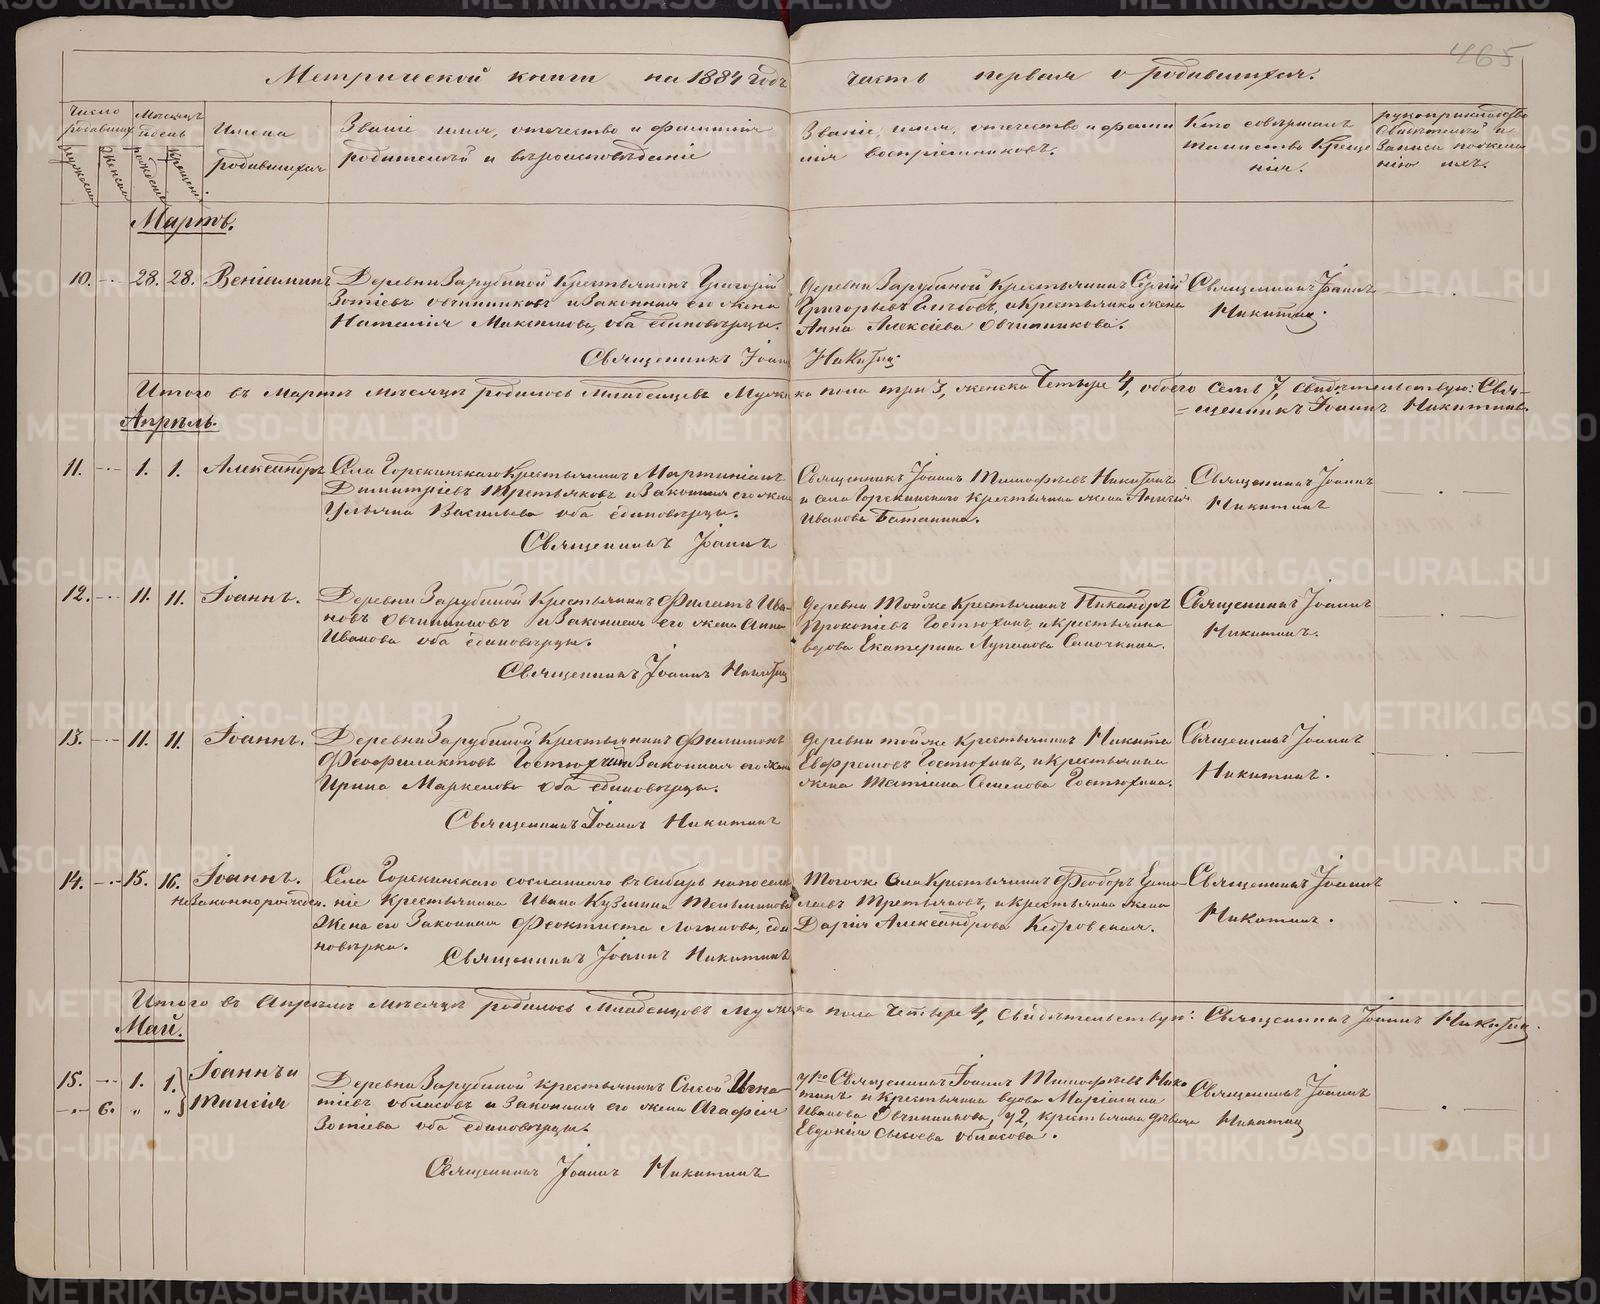 465
Метрической книги на 1884 годъ часть первая о родившихся.
Число родившихся
мужеска
женска
Мѣсяцъ и день
рожденія
крещенія
Имена родившихся
Званіе имя, отечество и фамилія
родителей и вѣроисповѣданіе
Званіе, имя, отечество и фами
лія воспріемниковъ.
Кто совершалъ
таинство Креще
нія.
рукоприкладство
Свидетелей и
записи по жела
нію ихъ.
Мартъ.
10. 28. 28. Веніаминъ
Деревни Зарубиной Крестьянинъ Григорій
Зотіевъ Овчинниковъ и Законная его жена
Наталія Максимова, оба единовѣрцы.
деревни Зарубиной Крестьянинъ Сергій
Григорьевъ Глѣбовъ, и Крестьянина жена
Анна Алексѣева Овчинникова.
Священникъ Іоаннъ
Никитин
Священникъ Іоаннъ Никитин
Итого въ Мартѣ мѣсяцѣ родилось Младенцевъ Мужеска пола три 3, женска Четыре 4, обоего Семь 7, свидѣтельствую: Свя-
=щенникъ Іоаннъ Никитинъ.
Апрѣль.
11. 1. 1. Александръ
Села Горскинскаго Крестьянинъ Мартиніанъ
Димитріевъ Третьяковъ и Законная его жена
Ульяна Васильева оба единовѣрцы.
Священникъ Іоаннъ Тимофѣевъ Никитинъ
и села Горскинского Крестьянина жена
Иванова Батанина.
Священникъ Іоаннъ
Никитинъ
Священникъ Іоаннъ
12. 11. 11. Іоаннъ.
Деревни Зарубиной Крестьянинъ Филатъ Ива-
новъ Овчинниковъ и Законная его жена Анна
Иванова оба единовѣрцы.
деревни Тойже Крестьянинъ Никандръ
Прокопіевъ Гостюхинъ, и крестьянина
вдова Екатерина Семочкина.
Священникъ Іоаннъ
Никитинъ.
Священникъ Іоаннъ Никитин
13. 11. 11. Іоаннъ.
Деревни Зарубиной Крестьянинъ Филимонъ
Феофилактовъ Гостюхинъ и Законная его жена
Ирина Маркелова оба единовѣрцы.
деревни тойже Крестьянинъ Никита
Евфремовъ Гостюхинъ, и крестьянина
жена Татіана Семенова Гостюхина.
Священникъ Іоаннъ
Никитинъ.
Священникъ Іоаннъ Никитинъ
14. 15. 16. Іоаннъ.
незаконнорожден.
Села Горскинскаго сосланнаго въ сибирь на поселе
ніе Крестьянина Ивана Кузмина
Жена его Законная Феоктиста Логинова, еди
новѣрка.
Тогоже Села Крестьянинъ Феодоръ Ермо-
лаевъ Третьяковъ, и крестьянина жена
Дарія Александрова Кедровская.
Священникъ Іоаннъ
Никитинъ.
Священникъ Іоаннъ Никитинъ
Итого въ Апрѣлѣ мѣсяцѣ родилось Младенцовъ мужеска пола Четыре 4, Свидѣтельствую: Священникъ Іоаннъ Никитин.
Май.
15. 1. 1. Іоаннъ и
6. „ „ Таисія
Деревни Зарубиной крестьянинъ Сысой Игна-
тіевъ Обласовъ и Законная его жена Агафія
Зотіева оба единовѣрцы.
у 1го Священникъ Іоаннъ Тимофѣевъ Ники
тинъ и крестьянина вдова Маріамна
Иванова Овчинникова, у 2, крестьянина дѣвица
Евдокія Сысоева Обласова.
Священникъ Іоаннъ
Никитин
Священникъ Іоаннъ Никитинъ
METRIKI.GASO-URAL.RU